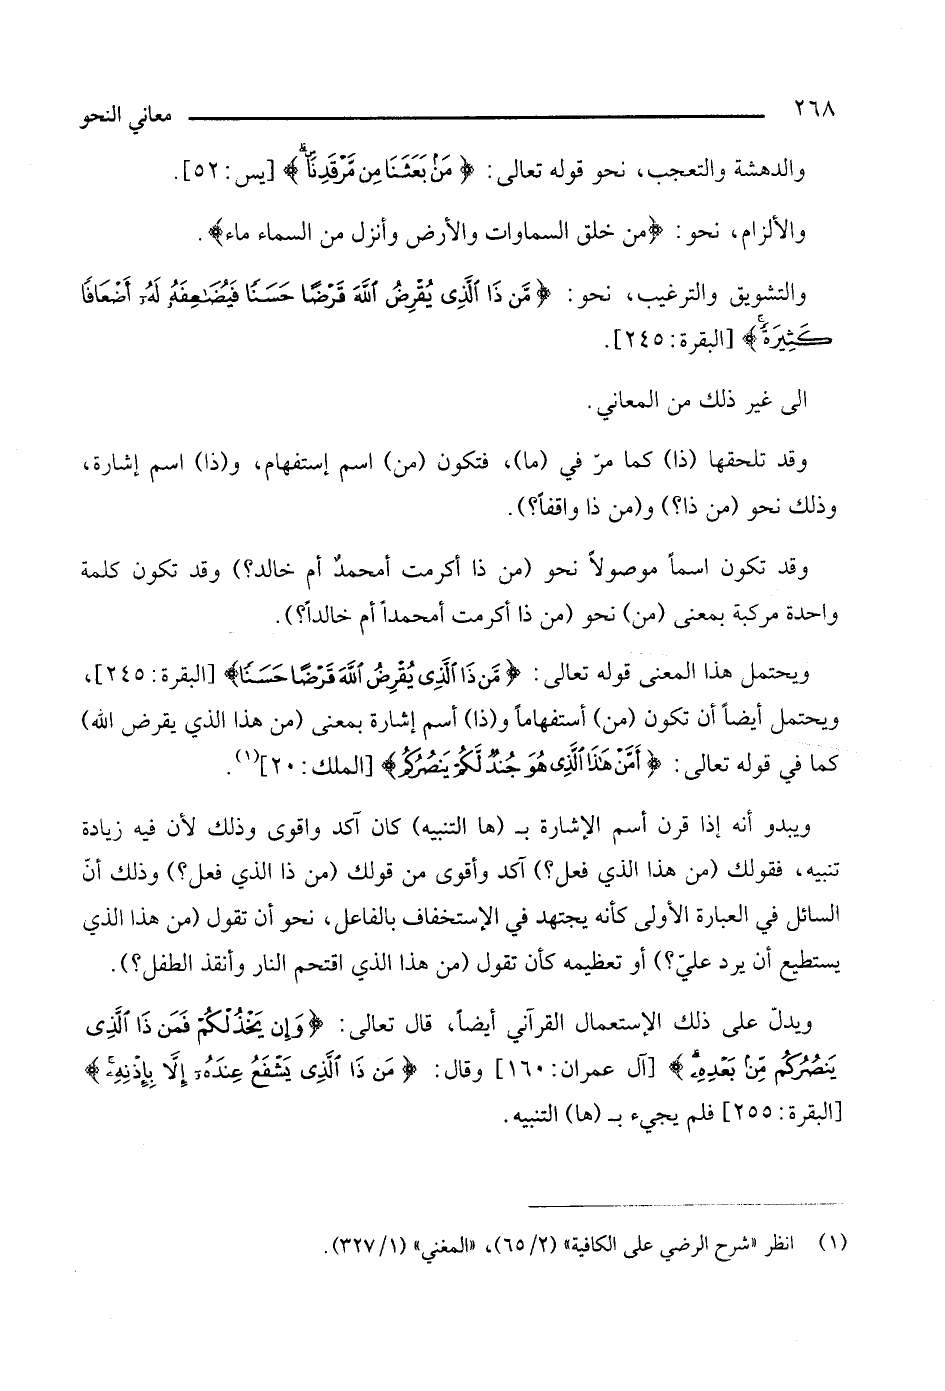 ٢٦٨ معاني النحو
والدهشة والتعجب، نحو قوله تعالى: ﴿مَنۢ بَعَثَنَا مِن مَّرْقَدِنَا ۜ ﴾ [يس: ٥٢].
والألزام، نحو: ﴿من خلق السماوات والأرض وأنزل من السماء ماء﴾.
والتشويق والترغيب، نحو: ﴿ مَّن ذَا ٱلَّذِى يُقْرِضُ ٱللَّهَ قَرْضًا حَسَنًا فَيُضَٰعِفَهُۥ لَهُۥٓ أَضْعَافًا
كَثِيرَةً ۚ ﴾ [البقرة: ٢٤٥].
الى غير ذلك من المعاني.
وقد تلحقها (ذا) كما مرّ في (ما)، فتكون (من) اسم إستفهام، و(ذا) اسم إشارة،
وذلك نحو (من ذا؟) و(من ذا واقفاً؟).
وقد تكون اسماً موصولاً نحو (من ذا أكرمت أمحمدٌ أم خالد؟) وقد تكون كلمة
واحدة مركبة بمعنى (من) نحو (من ذا أكرمت أمحمداً أم خالداً؟).
ويحتمل هذا المعنى قوله تعالى: ﴿ مَّن ذَا ٱلَّذِى يُقْرِضُ ٱللَّهَ قَرْضًا حَسَنًا﴾ [البقرة: ٢٤٥]،
ويحتمل أيضاً أن تكون (من) أستفهاماً و(ذا) أسم إشارة بمعنى (من هذا الذي يقرض الله)
كما في قوله تعالى: ﴿ أَمَّنْ هَٰذَا ٱلَّذِى هُوَ جُندٌ لَّكُمْ يَنصُرُكُم﴾ [الملك: ٢٠](١).
ويبدو أنه إذا قرن أسم الإشارة بـ (ها التنبيه) كان آكد واقوى وذلك لأن فيه زيادة
تنبيه، فقولك (من هذا الذي فعل؟) آكد وأقوى من قولك (من ذا الذي فعل؟) وذلك أنّ
السائل في العبارة الأولى كأنه يجتهد في الإستخفاف بالفاعل، نحو أن تقول (من هذا الذي
يستطيع أن يرد عليّ؟) أو تعظيمه كأن تقول (من هذا الذي اقتحم النار وأنقذ الطفل؟).
ويدلّ على ذلك الإستعمال القرآني أيضاً، قال تعالى: ﴿وَإِن يَخْذُلْكُمْ فَمَن ذَا ٱلَّذِى
يَنصُرُكُم مِّنۢ بَعْدِهِۦ ۗ ﴾ [آل عمران: ١٦٠] وقال: ﴿ مَن ذَا ٱلَّذِى يَشْفَعُ عِندَهُۥٓ إِلَّا بِإِذْنِهِۦ ۚ ﴾
[البقرة: ٢٥٥] فلم يجيء بـ (ها) التنبيه.
(١) انظر «شرح الرضي على الكافية» (٢/ ٦٥)، «المغني» (١/ ٣٢٧).